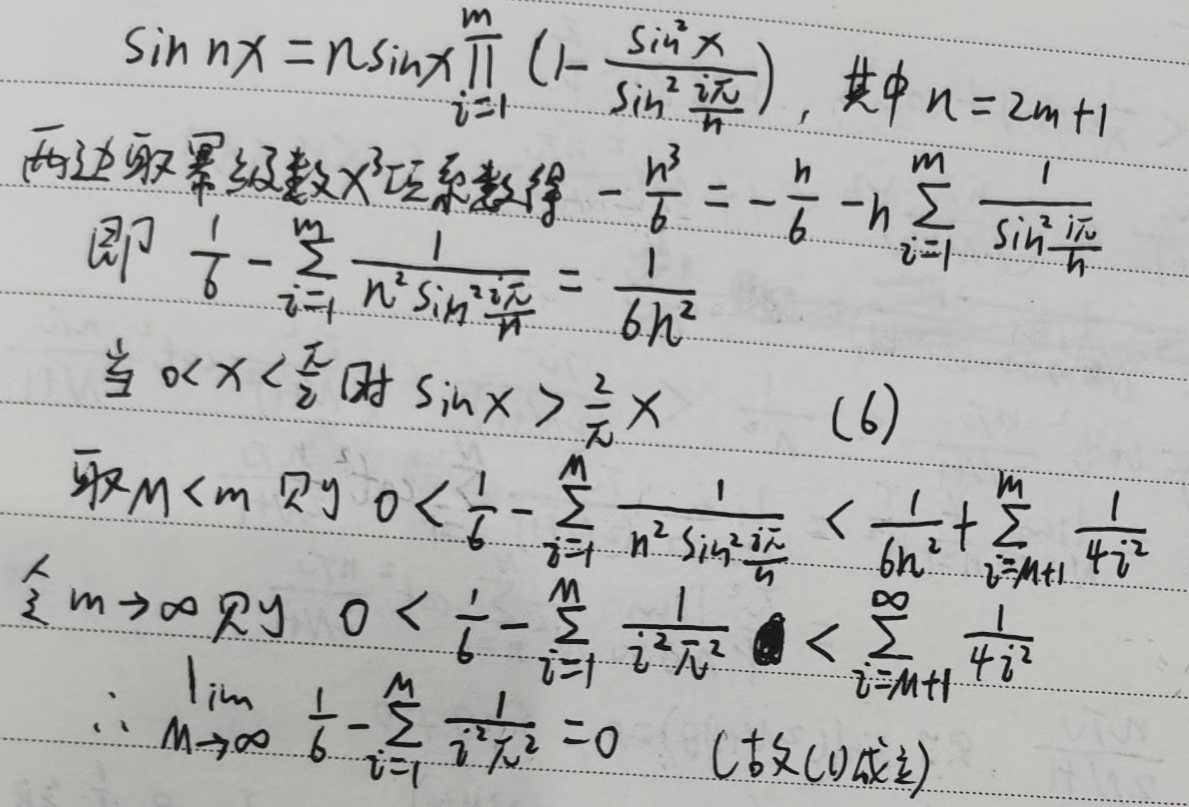 sin nx = n sinx ∏_{i=1}^{m} (1 - \frac{sin² x}{sin² \frac{iπ}{n}}), 其中 n = 2m+1
两边取幂级数x³项系数得 -\frac{n³}{6} = -\frac{n}{6} - n ∑_{i=1}^{m} \frac{1}{sin² \frac{iπ}{n}}
即 \frac{1}{6} - ∑_{i=1}^{m} \frac{1}{n² sin² \frac{iπ}{n}} = \frac{1}{6n²}
当 0 < x < \frac{π}{2} 时 sin x > \frac{2}{π} x (6)
取 M < m 则 0 < \frac{1}{6} - ∑_{i=1}^{M} \frac{1}{n² sin² \frac{iπ}{n}} < \frac{1}{6n²} + ∑_{i=M+1}^{m} \frac{1}{4i²}
令 m → ∞ 则 0 < \frac{1}{6} - ∑_{i=1}^{M} \frac{1}{i²π²} < ∑_{i=M+1}^{∞} \frac{1}{4i²}
∴ lim_{M→∞} \frac{1}{6} - ∑_{i=1}^{M} \frac{1}{i²π²} = 0 (故(1)成立)